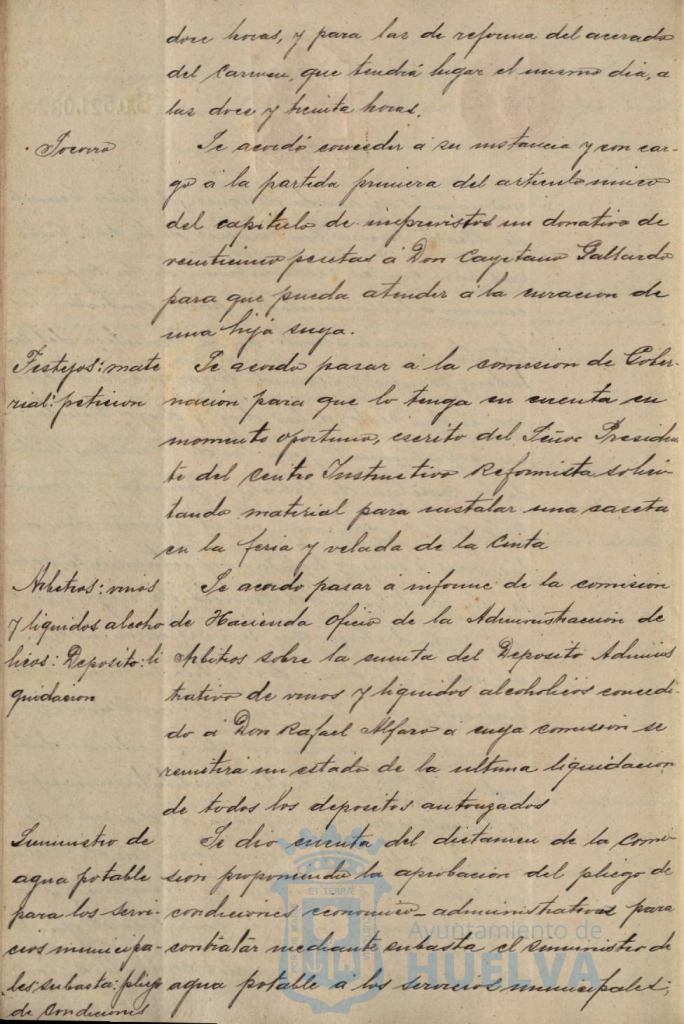 doce horas, y para las de reforma del acerado
del Carmen, que tendrá lugar el mismo dia, a
las doce y treinta horas.
Socorro
Se acordó conceder á su instancia y con car-
go á la partida primera del articulo unico
del capitulo de imprevistos un donativo de
veinticinco pesetas á Don Cayetano Gallardo
para que pueda atender á la curacion de
una hija suya.
Festejos: mate
rial: peticion
Se acordo pasar á la comision de Gober-
nación para que lo tenga en cuenta en
momento oportuno, escrito del Señor Preside
te del Centro Instructivo Reformista solici
tando material para instalar una caseta
en la feria y velada de la Cinta
Arbitrios: vinos
y liquidos alcoho
licos: Deposito: li
quidacion
Se acordo pasar á informe de la comision
de Hacienda Oficio de la Administracción de
Arbitros sobre la cuenta del Deposito Adminis
trativo de vinos y liquidos alcoholicos concedi
do á Don Rafael Alfaro a cuya comision se
remitirá un estado de la ultima liquidacion
de todos los depositos autorizados
Suministro de
agua potable
para los servi
cios municipa-
les: subasta: pliego
de condiciones
Se dio cuenta del dictamen de la Comi
sion proponiendo la aprobación del pliego de
condiciones economico-administrativas para
contratar mediante subasta el suministro de
agua potable á los servicios municipales;
ET TERRA
Ayuntamiento de
HUELVA